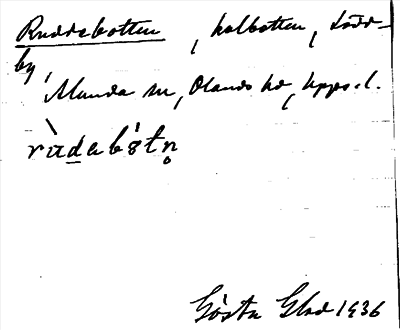 Ruddsbotten, kalbotten, Lödd-
by,
Alunda sn, Olands hd, Upps. l.
rùdabótn̥
Gösta Glad 1936